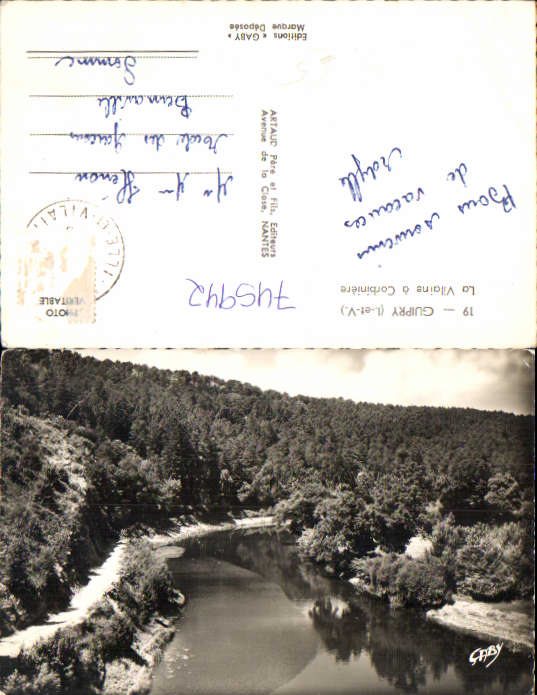 19 — GUIPRY (I.-et-V.)
La Vilaine à Corbinière
745942
PHOTO
VERITABLE
ILLE-ET-VILAI
Bons souvenirs
de vacances
Mr Mme Hénon
Route des
Bernaville
Somme
ARTAUD Père et Fils, Editeurs
Avenue de la Close, NANTES
Editions « GABY »
Marque Déposée
GABY